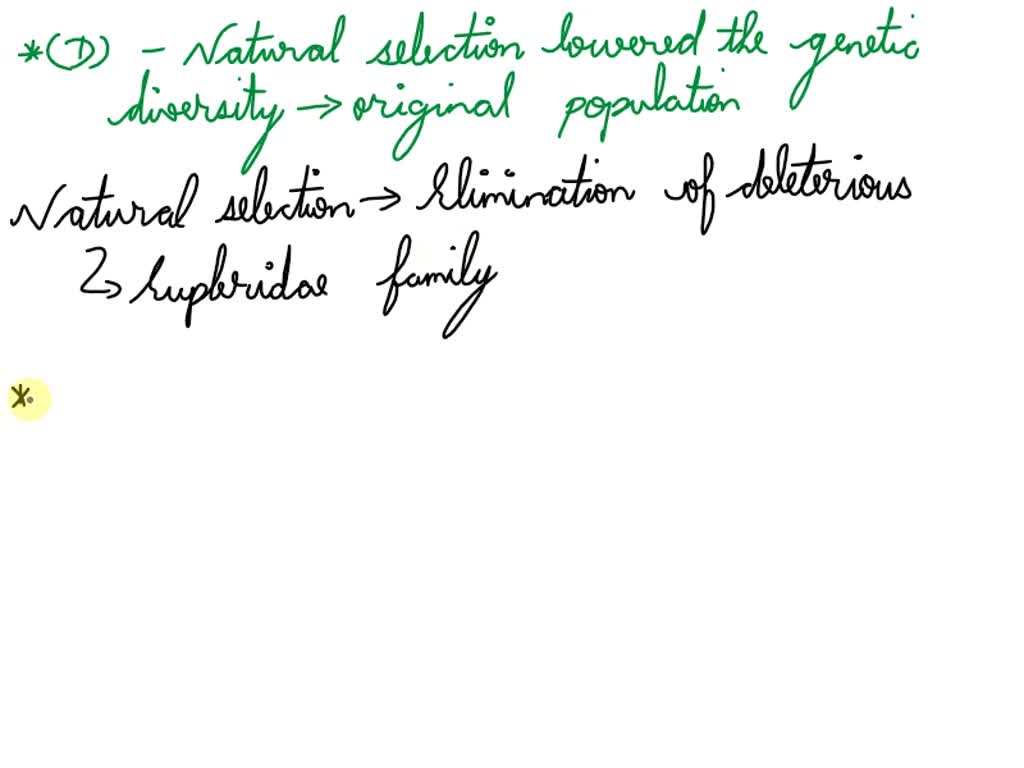 *(D) - Natural selection lowered the genetic
diversity → original population
Natural selection → Elimination of deleterious
↳ Eupleridae family
*